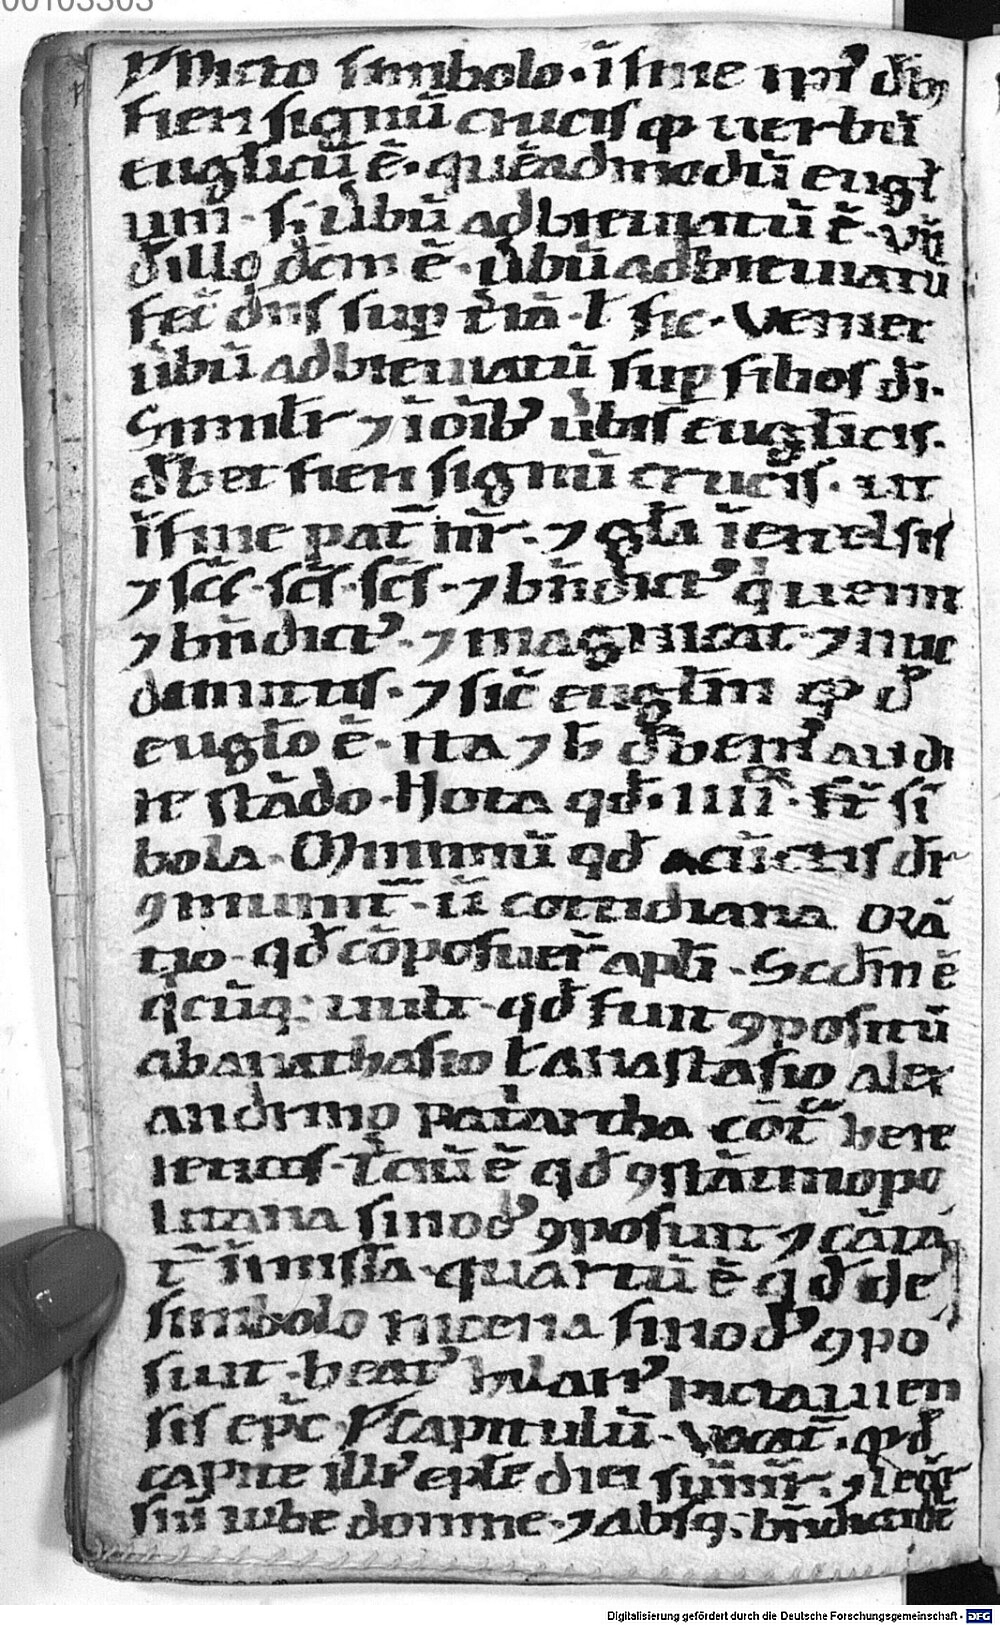 00103303
dicto simbolo. ī fine ipī dēb3
fieri signū crucis qꝫ uerbū
euglicū ē. quēadmodū eugł
adbreuiatū ē. vñ
dillo dcm ē. ūbū adbreuiatū
feč dns sup trā. ł sic. Veniet
ūbū adbreuiatū sup filios
Similr ⁊ ī oīb᾿ ūbis euglicis.
dbet fieri signū crucis. ut
ī fine pat̄ nr̄. ⁊ głā ī excelsis
⁊ sc̄s. sc̄s. sc̄s. ⁊ bn̄dict᾿ qui uenit
⁊ bn̄dict᾿. ⁊ magnificat. ⁊ nūc
dimittis. ⁊ sic̄ eugłm
eugło ē. ita ⁊ h᾿ audi
re stādo. Nota qd̄. IIII. st̄ sī
bola. Minimū qd̄ a cūctis dr̄
ꝯmuniт̄. cottidiana orā
tio. qd̄ cōposuer̄ apłi. Scdm ē
q̄cūq; uult. qd̄ fuit ꝯpositū
ab anathasio ł anastasio alex
andrino patarcha cōt̄ here
reticos. Tciū ē qd̄ ꝯstātinopo
litana sinod᾿ ꝯposuit ⁊ cāta
t̄ ī missa. quartū ē qd̄ de
simbolo nicena sinod᾿ ꝯpo
suit. beat᾿ hilari᾿ pictauien
sis epc. Capitulū. vocat̄. qd̄
capite illi᾿ epłe diei sumit̄. ⁊ legit̄
sine iube domine. ⁊ absq; bn̄dictiōe
Digitalisierung gefördert durch die Deutsche Forschungsgemeinschaft - DFG